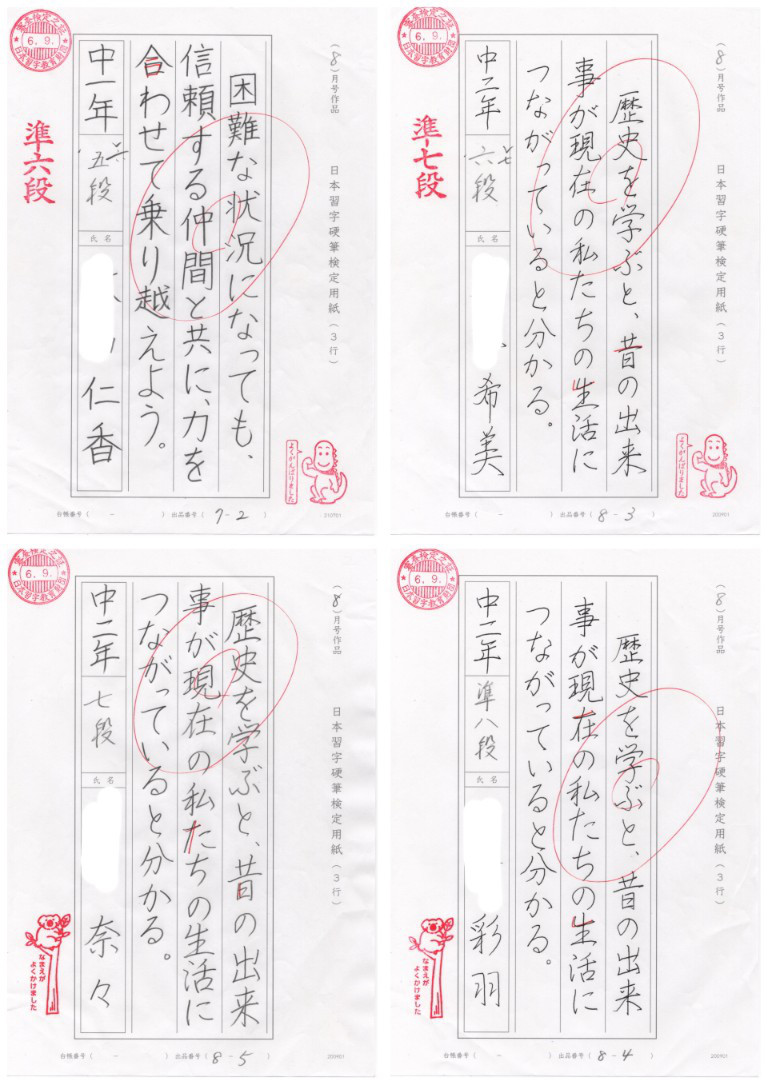 (8)月号作品
日本習字硬筆検定用紙(3行)
困難な状況になっても、
信頼する仲間と共に、力を
合わせて乗り越えよう。
中一年
段
氏名
仁香
6.9.
日本習字教育財団
準六段
よくがんばりました
台帳番号( - ) 出品番号( 7-2 )
(8)月号作品
日本習字硬筆検定用紙(3行)
歴史を学ぶと、昔の出来
事が現在の私たちの生活に
つながっていると分かる。
中二年
段
氏名
希美
6.9.
日本習字教育財団
準七段
よくがんばりました
台帳番号( - ) 出品番号( 8-3 )
(8)月号作品
日本習字硬筆検定用紙(3行)
歴史を学ぶと、昔の出来
事が現在の私たちの生活に
つながっていると分かる。
中二年
七段
氏名
奈々
6.9.
日本習字教育財団
なまえが
よくかけました
台帳番号( - ) 出品番号( 8-5 )
(8)月号作品
日本習字硬筆検定用紙(3行)
歴史を学ぶと、昔の出来
事が現在の私たちの生活に
つながっていると分かる。
中二年
準八段
氏名
彩羽
6.9.
日本習字教育財団
なまえが
よくかけました
台帳番号( - ) 出品番号( 8-4 )